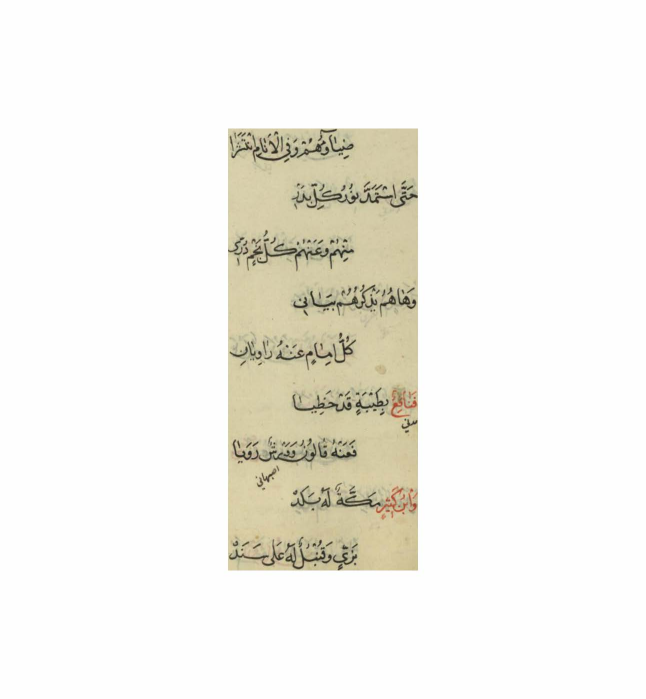 ضِيَاؤُهُمْ وَفِي الْأَنَامِ انْتَشَرَا
حَتَّى اسْتَمَدَّ نُورُ كُلِّ بَدْرِ
مِنْهُمْ وَعَنْهُمْ كُلُّ نَجْمٍ دُرِّي
وَهَا هُمُ يَذْكُرُهُمْ بَيَانِي
كُلُّ إِمَامٍ عَنْهُ رَاوِيَانِ
فَنَافِعٌ بِطَيْبَةٍ قَدْ حَظِيَا
مدني
فَعَنْهُ قَالُونُ وَوَرْشٌ رَوَيَا
اصبهاني
وَابْنُ كَثِيرٍ مَكَّةٌ لَهُ بَلَدْ
بَزِّي وَقُنْبُلٌ لَهُ عَلَى سَنَدْ